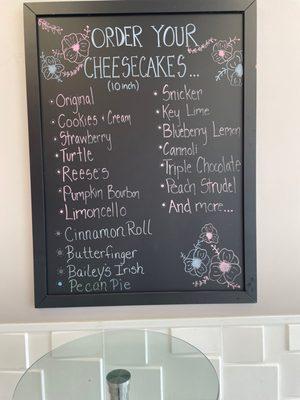 ORDER YOUR
CHEESECAKES...
(10 inch)
Original
Cookies + Cream
Strawberry
Turtle
Reese's
Pumpkin Bourbon
Limoncello
Cinnamon Roll
Butterfinger
Bailey's Irish
Pecan Pie
Snicker
Key Lime
Blueberry Lemon
Cannoli
Triple Chocolate
Peach Strudel
And more...